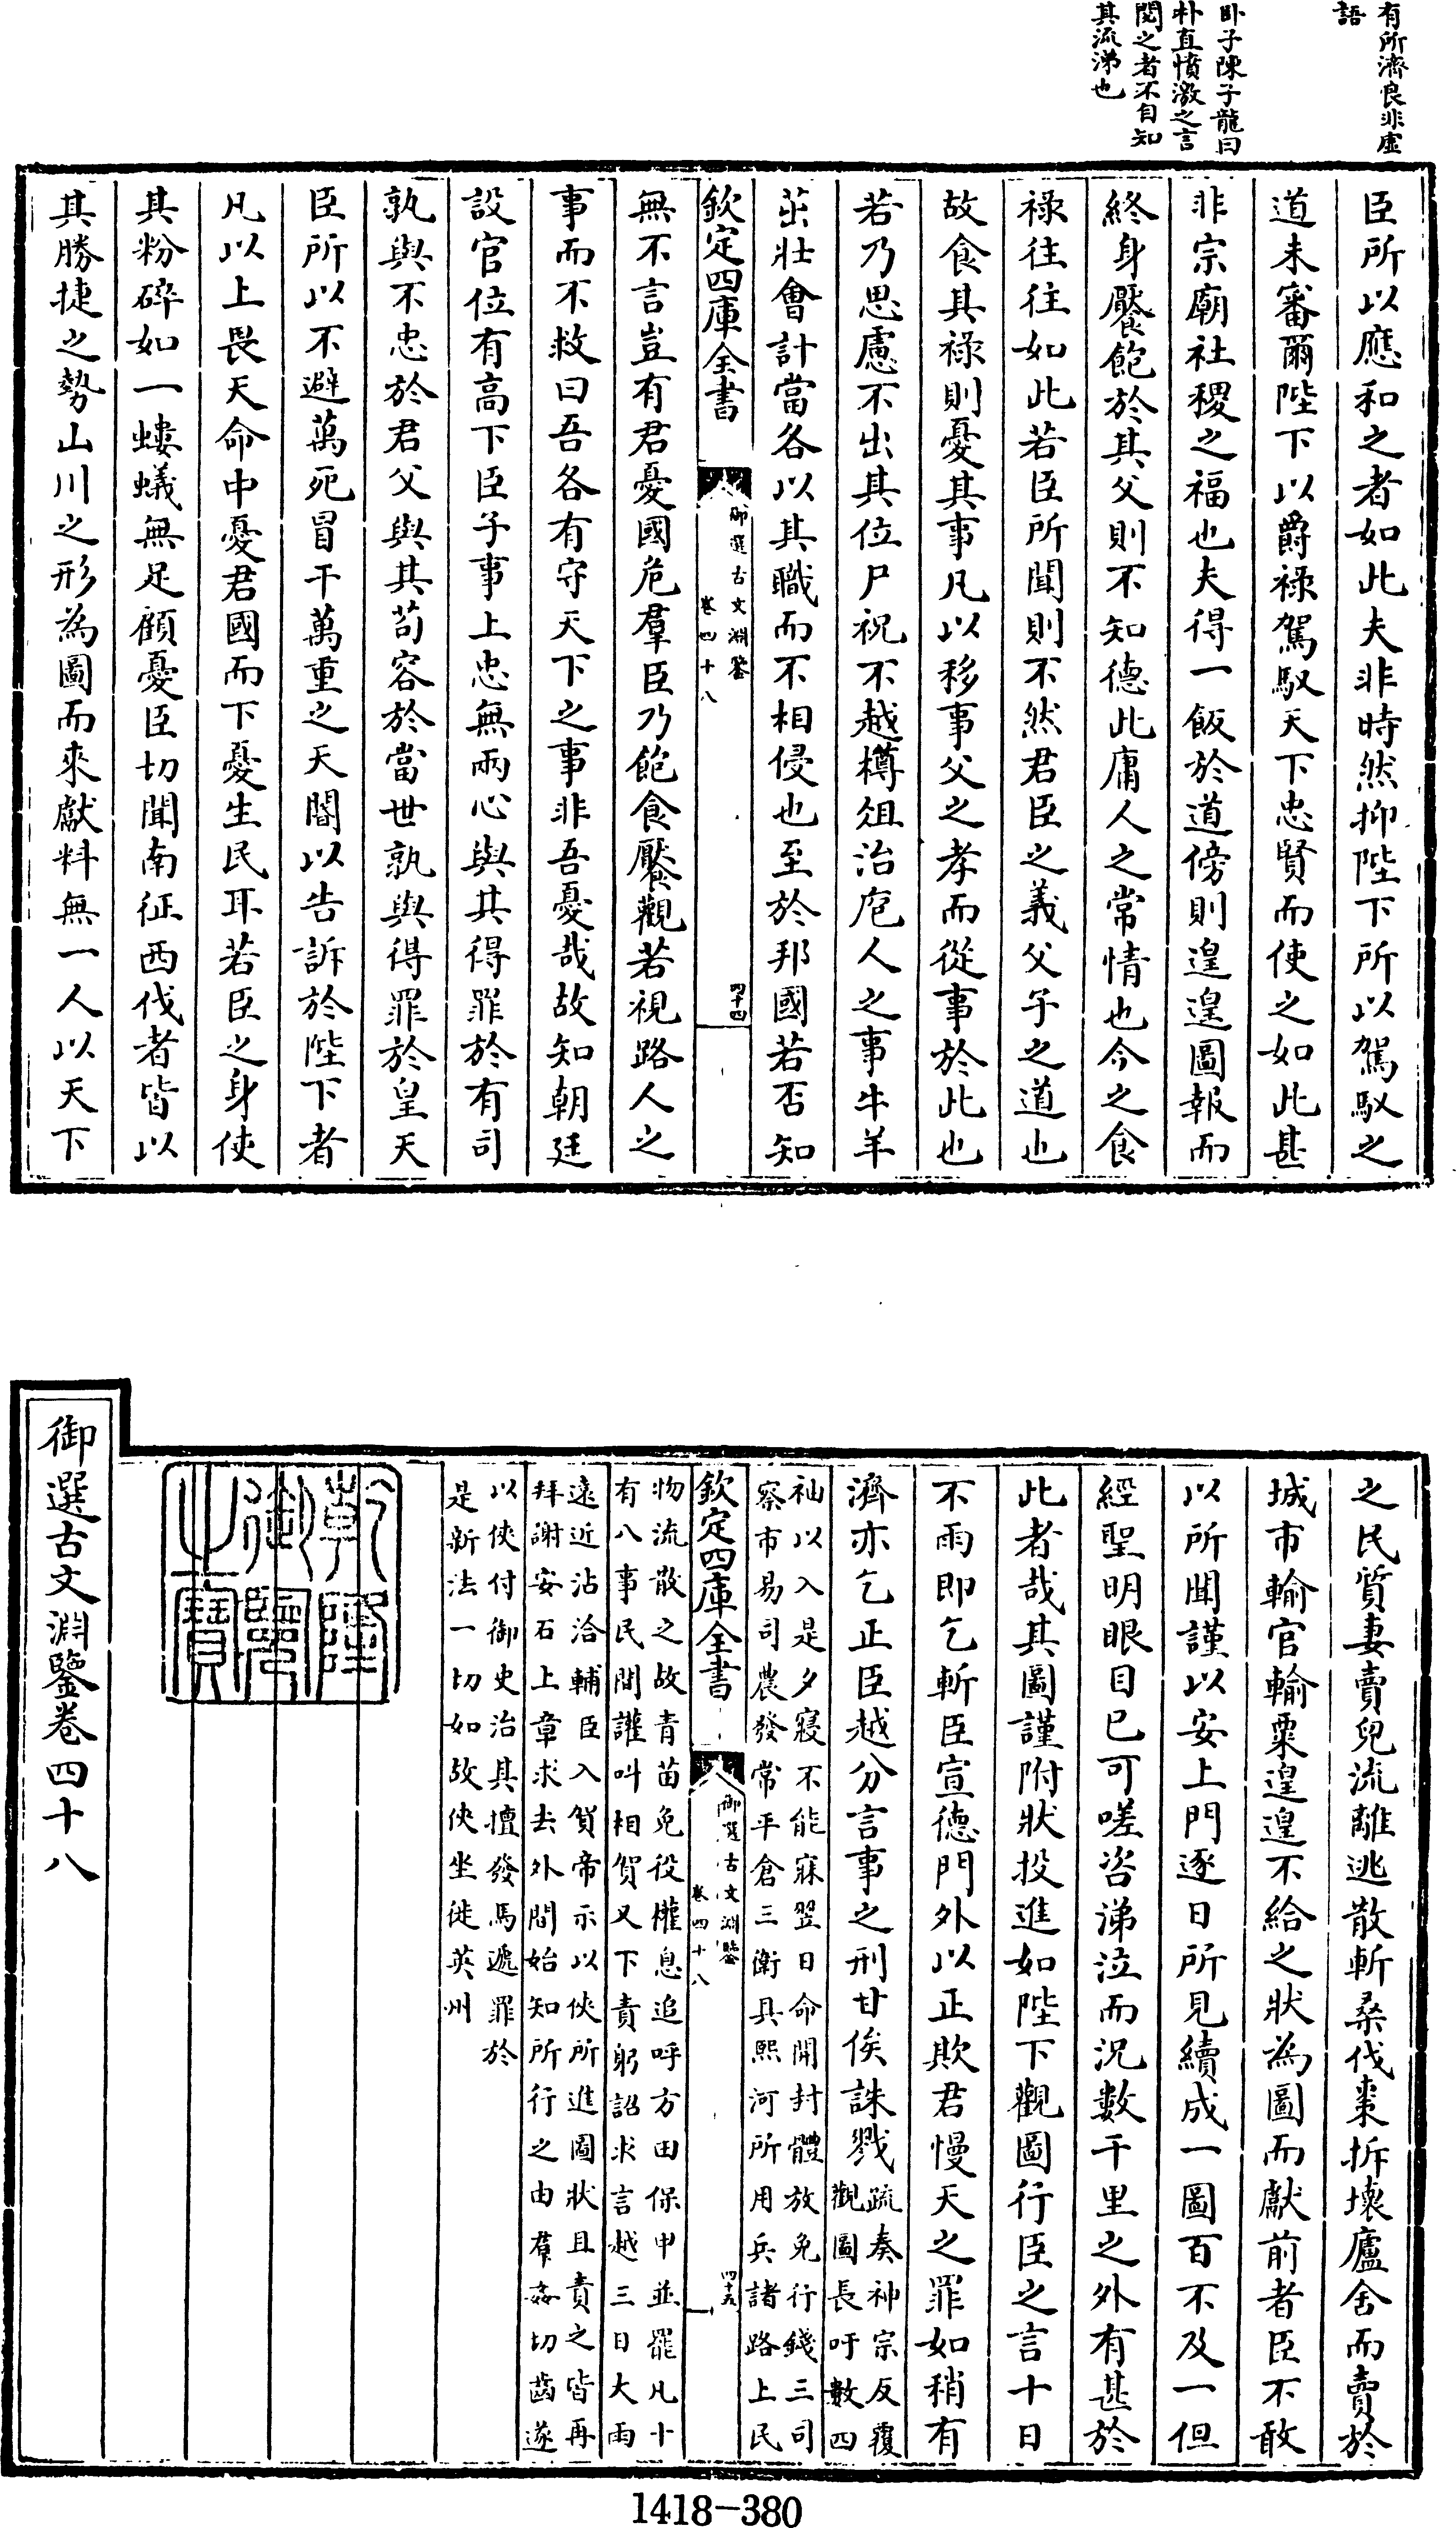 有所濟良非虛
語
卧子陳子龍曰
朴直憤激之言
閱之者不自知
其流涕也
臣所以應和之者如此夫非時然抑陛下所以駕馭之
道未審爾陛下以爵祿駕馭天下忠賢而使之如此甚
非宗廟社稷之福也夫得一飯於道傍則遑遑圖報而
終身饜飽於其父則不知德此庸人之常情也今之食
祿往往如此若臣所聞則不然君臣之義父子之道也
故食其祿則憂其事凡以移事父之孝而從事於此也
若乃思慮不出其位尸祝不越樽俎治庖人之事牛羊
茁壯會計當各以其職而不相侵也至於邦國若否知
欽定四庫全書
御選古文淵鑒
卷四十八
四十四
無不言豈有君憂國危羣臣乃飽食饜觀若視路人之
事而不救曰吾各有守天下之事非吾憂哉故知朝廷
設官位有高下臣子事上忠無兩心與其得罪於有司
孰與不忠於君父與其苟容於當世孰與得罪於皇天
臣所以不避萬死冒干萬重之天閽以告訴於陛下者
凡以上畏天命中憂君國而下憂生民耳若臣之身使
其粉碎如一螻蟻無足顧憂臣切聞南征西伐者皆以
其勝捷之勢山川之形為圖而來獻料無一人以天下
之民質妻賣兒流離逃散斬桑伐棗拆壞廬舍而賣於
城市輸官輸粟遑遑不給之狀為圖而獻前者臣不敢
以所聞謹以安上門逐日所見續成一圖百不及一但
經聖明眼目已可嗟咨涕泣而況數千里之外有甚於
此者哉其圖謹附狀投進如陛下觀圖行臣之言十日
不雨即乞斬臣宣德門外以正欺君慢天之罪如稍有
濟亦乞正臣越分言事之刑甘俟誅戮
疏奏神宗反覆
觀圖長吁數四
袖以入是夕寢不能寐翌日命開封體放免行錢三司
察市易司農發常平倉三衛具熙河所用兵諸路上民
欽定四庫全書
御選古文淵鑒
卷四十八
四十五
物流散之故青苗免役權息追呼方田保甲並罷凡十
有八事民間讙叫相賀又下責躬詔求言越三日大雨
遠近沾洽輔臣入賀帝示以俠所進圖狀且責之皆再
拜謝安石上章求去外間始知所行之由羣姦切齒遂
以俠付御史治其擅發馬遞罪於
是新法一切如故俠坐徙英州
乾隆
御覽
之寶
御選古文淵鑒卷四十八
1418-380